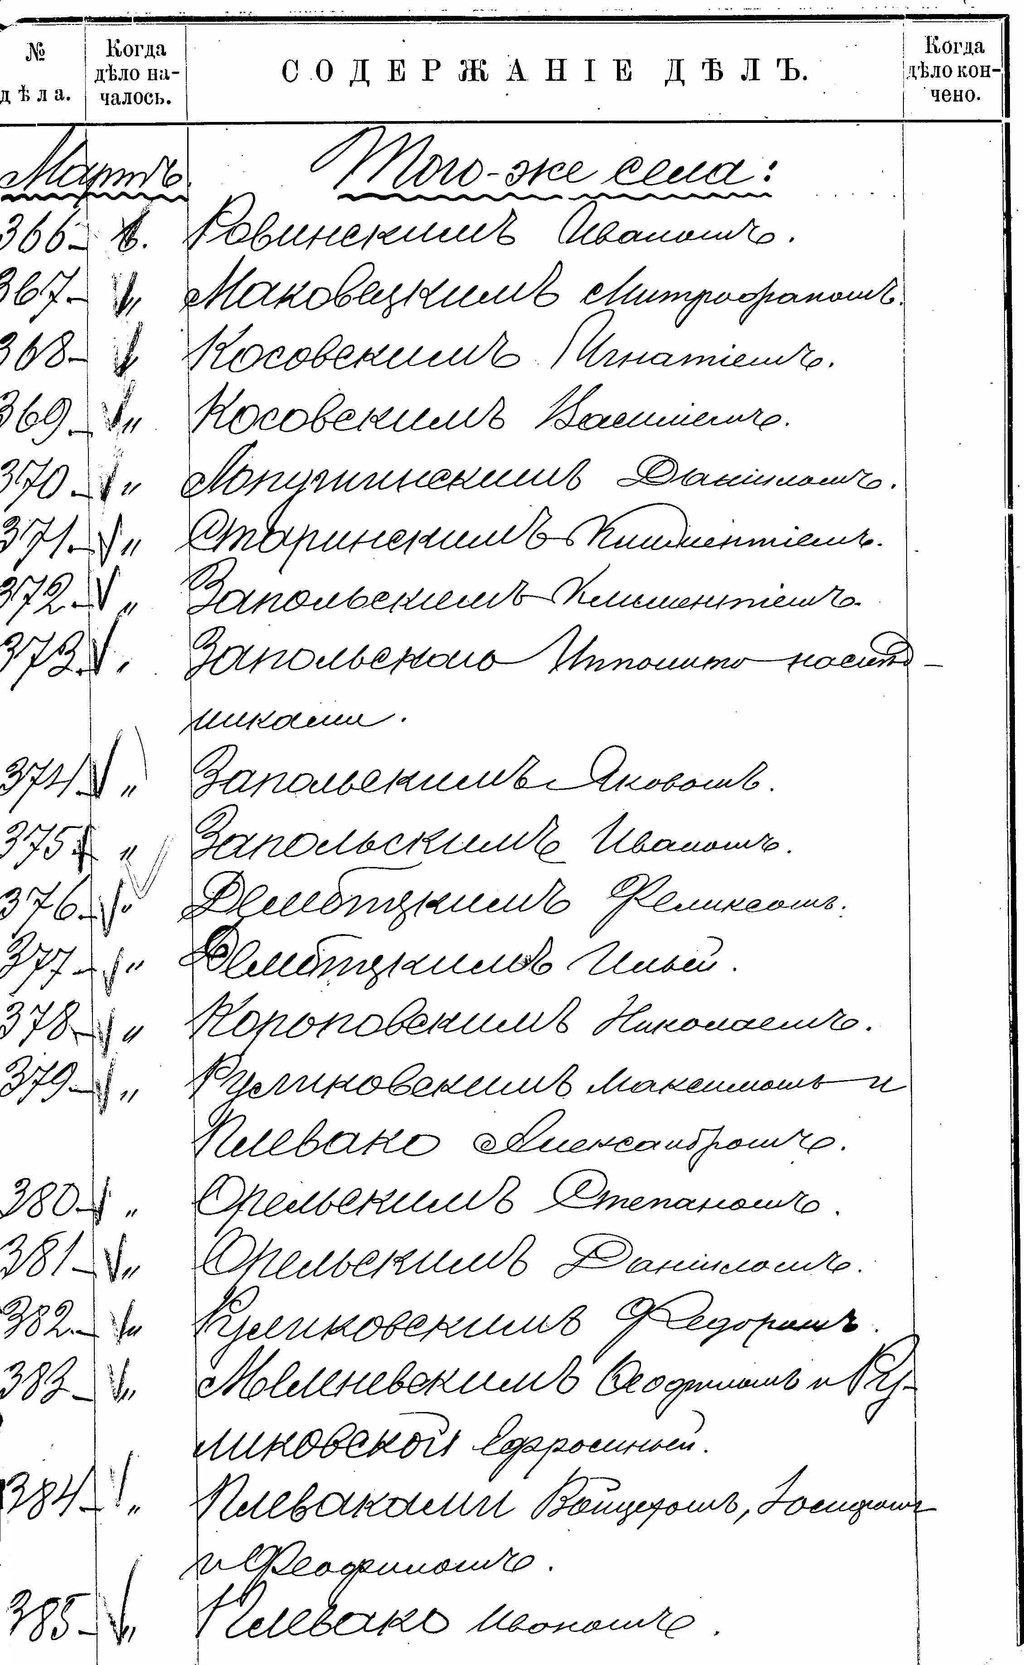 № дѣла.
Когда дѣло началось.
СОДЕРЖАНІЕ ДѢЛЪ.
Когда дѣло кончено.
Мартъ
Того-же села:
366- 6. Ровинскимъ Иваномъ.
367- " Маковецкимъ Митрофаномъ.
368- Косовскимъ Игнатіемъ.
369- " Косовскимъ Василіемъ.
370- " Лопушинскимъ Даніиломъ.
371- " Старинскимъ Климентіемъ.
372- " Запольскимъ Климентіемъ.
373 " Запольскаго Ипполита наслѣд-
никами.
374 " Запольскимъ Яковомъ.
375 " Запольскимъ Иваномъ.
376- " Дембицкимъ Феликсомъ.
377- " Дембицкимъ Ильей.
378- " Короповскимъ Николаемъ.
379- " Руликовскимъ Максимомъ и
Плевако Александромъ.
380- " Орельскимъ Степаномъ.
381- " Орельскимъ Даніиломъ.
382- " Руликовскимъ Федоромъ.
383- " Меленевскимъ Ѳеофиломъ и Ру-
ликовской Ефросиньей.
384- " Плеваками Войцехомъ, Іосифомъ
и Феофиломъ.
385- " Плевако Иваномъ.